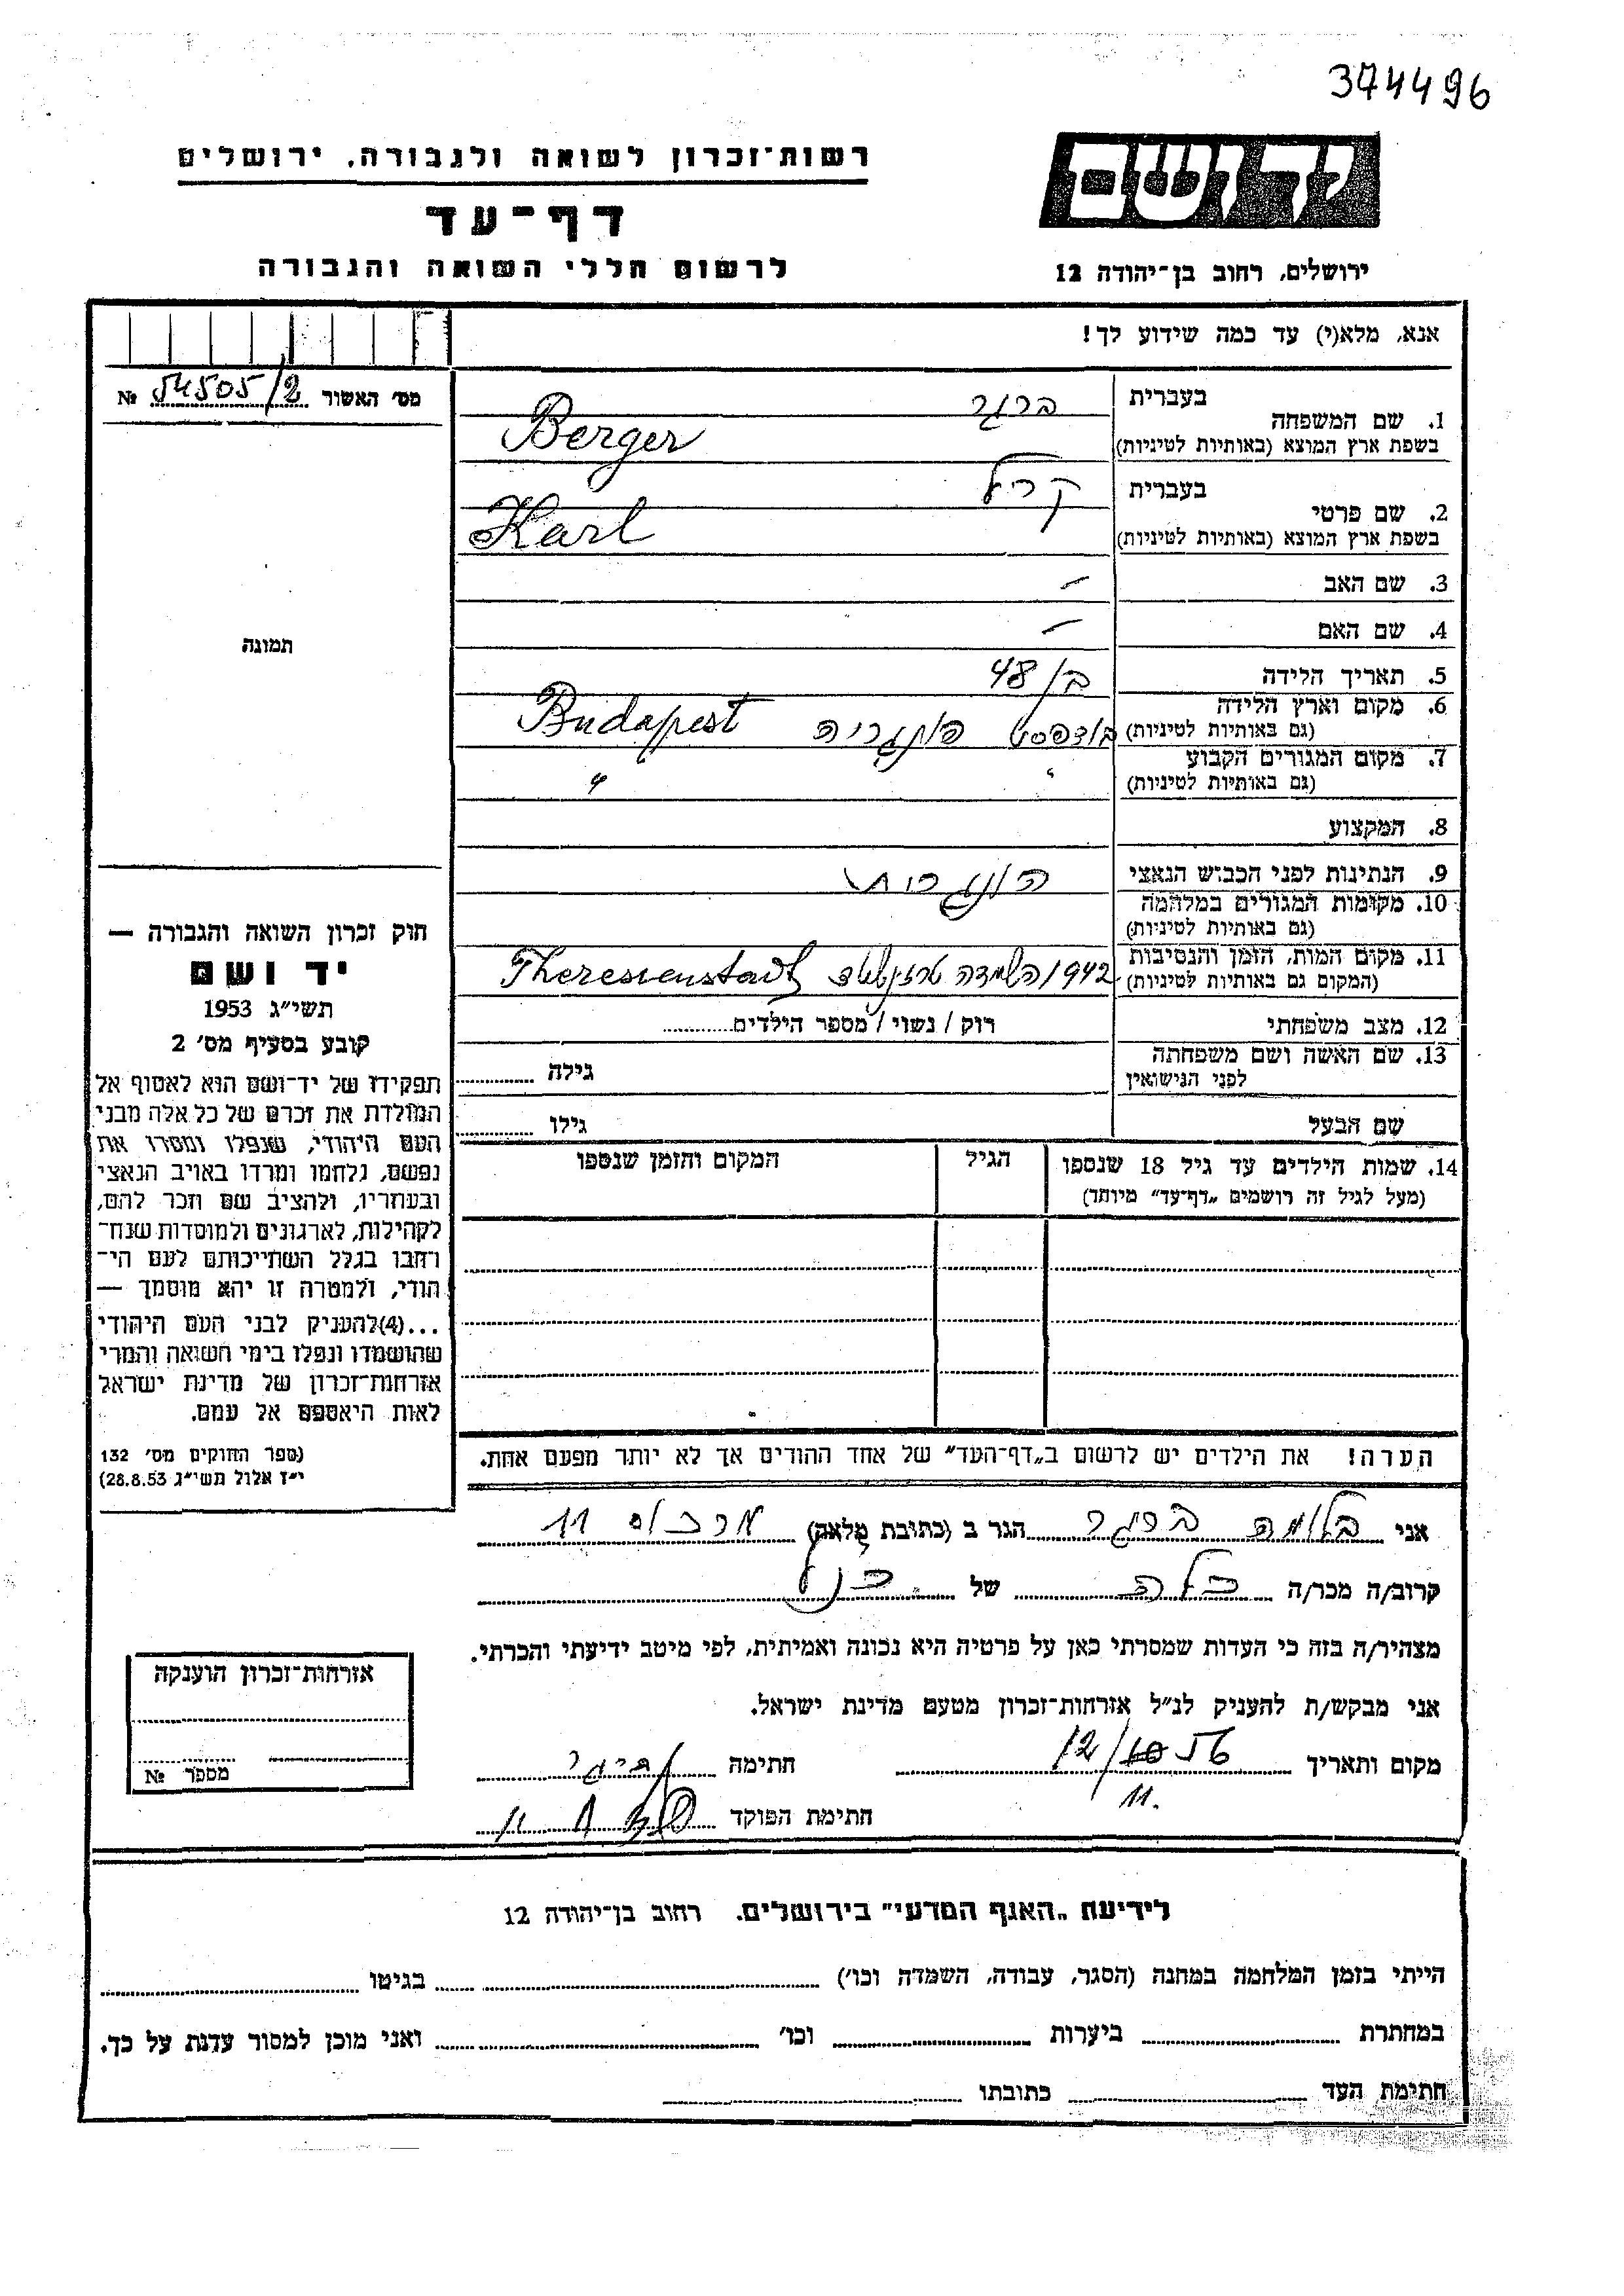 374496
יד ושם
רשות־זכרון לשואה ולגבורה, ירושלים
דף־עד
לרשום חללי השואה והגבורה
ירושלים, רחוב בן־יהודה 12
אנא, מלא(י) עד כמה שידוע לך!
מס׳ האשור 54505/2 №
1. שם המשפחה
בעברית ברגר
בשפת ארץ המוצא (באותיות לטיניות) Berger
2. שם פרטי
בעברית קרל
בשפת ארץ המוצא (באותיות לטיניות) Karl
3. שם האב —
4. שם האם —
5. תאריך הלידה בן 48
6. מקום וארץ הלידה
(גם באותיות לטיניות) בודפסט הונגריה Budapest
7. מקום המגורים הקבוע
(גם באותיות לטיניות) " "
8. המקצוע
9. הנתינות לפני הכבוש הנאצי הונגרית
10. מקומות המגורים במלחמה
(גם באותיות לטיניות)
11. מקום המות, הזמן והנסיבות
(המקום גם באותיות לטיניות) 1942 השמדה Theresienstadt
12. מצב משפחתי רוק / נשוי / מספר הילדים
13. שם האשה ושם משפחתה
לפני הנישואין גילה
שם הבעל גילו
14. שמות הילדים עד גיל 18 שנספו הגיל המקום והזמן שנספו
(מעל לגיל זה רושמים „דף־עד” מיוחד)
הערה! את הילדים יש לרשום ב„דף־העד” של אחד ההורים אך לא יותר מפעם אחת.
תמונה
חוק זכרון השואה והגבורה —
יד ושם
תשי״ג 1953
קובע בסעיף מס׳ 2
תפקידו של יד־ושם הוא לאסוף אל
המולדת את זכרם של כל אלה מבני
העם היהודי, שנפלו ומסרו את
נפשם, נלחמו ומרדו באויב הנאצי
ובעוזריו, ולהציב שם וזכר להם,
לקהילות, לארגונים ולמוסדות שנח־
רבו בגלל השתייכותם לעם הי־
הודי, ולמטרה זו יהא מוסמך —
...(4)להעניק לבני העם היהודי
שהושמדו ונפלו בימי השואה והמרי
אזרחות־זכרון של מדינת ישראל
לאות היאספם אל עמם.
(ספר החוקים מס׳ 132
י״ז אלול תשי״ג 28.8.53)
אני בלומה ברגר הגר ב (כתובת מלאה) 11
קרוב/ה מכר/ה כלה של
מצהיר/ה בזה כי העדות שמסרתי כאן על פרטיה היא נכונה ואמיתית, לפי מיטב ידיעתי והכרתי.
אני מבקש/ת להעניק לנ״ל אזרחות־זכרון מטעם מדינת ישראל.
מקום ותאריך 12/10 56 חתימה
11.
חתימת הפוקד
אזרחות־זכרון הוענקה
מספר №
לידיעת „האגף המדעי” בירושלים. רחוב בן־יהודה 12
הייתי בזמן המלחמה במחנה (הסגר, עבודה, השמדה וכו׳) בגיטו
במחתרת ביערות וכו׳ ואני מוכן למסור עדות על כך.
חתימת העד כתובתו